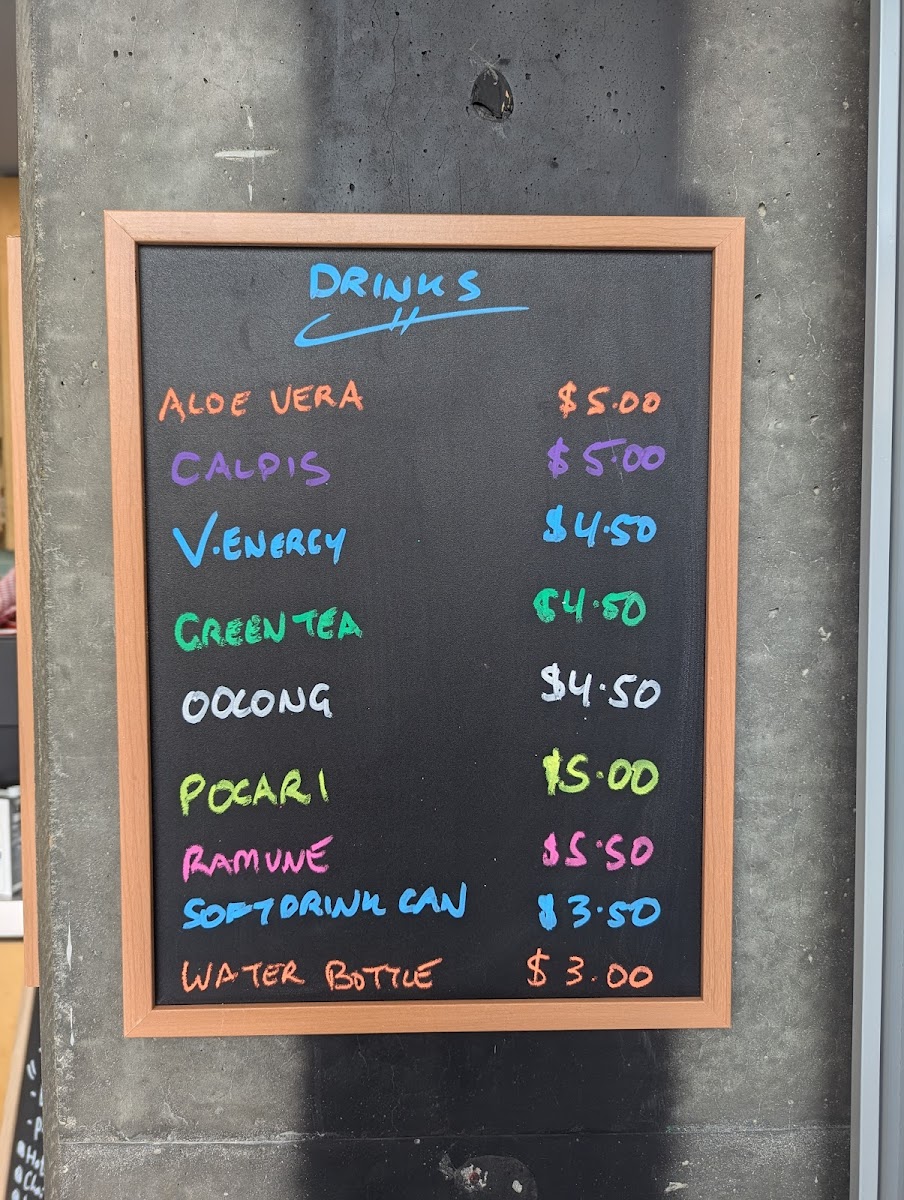 DRINKS
ALOE VERA $5.00
CALPIS $5.00
V.ENERGY $4.50
GREEN TEA $4.50
OOLONG $4.50
POCARI $5.00
RAMUNE $5.50
SOFTDRINK CAN $3.50
WATER BOTTLE $3.00